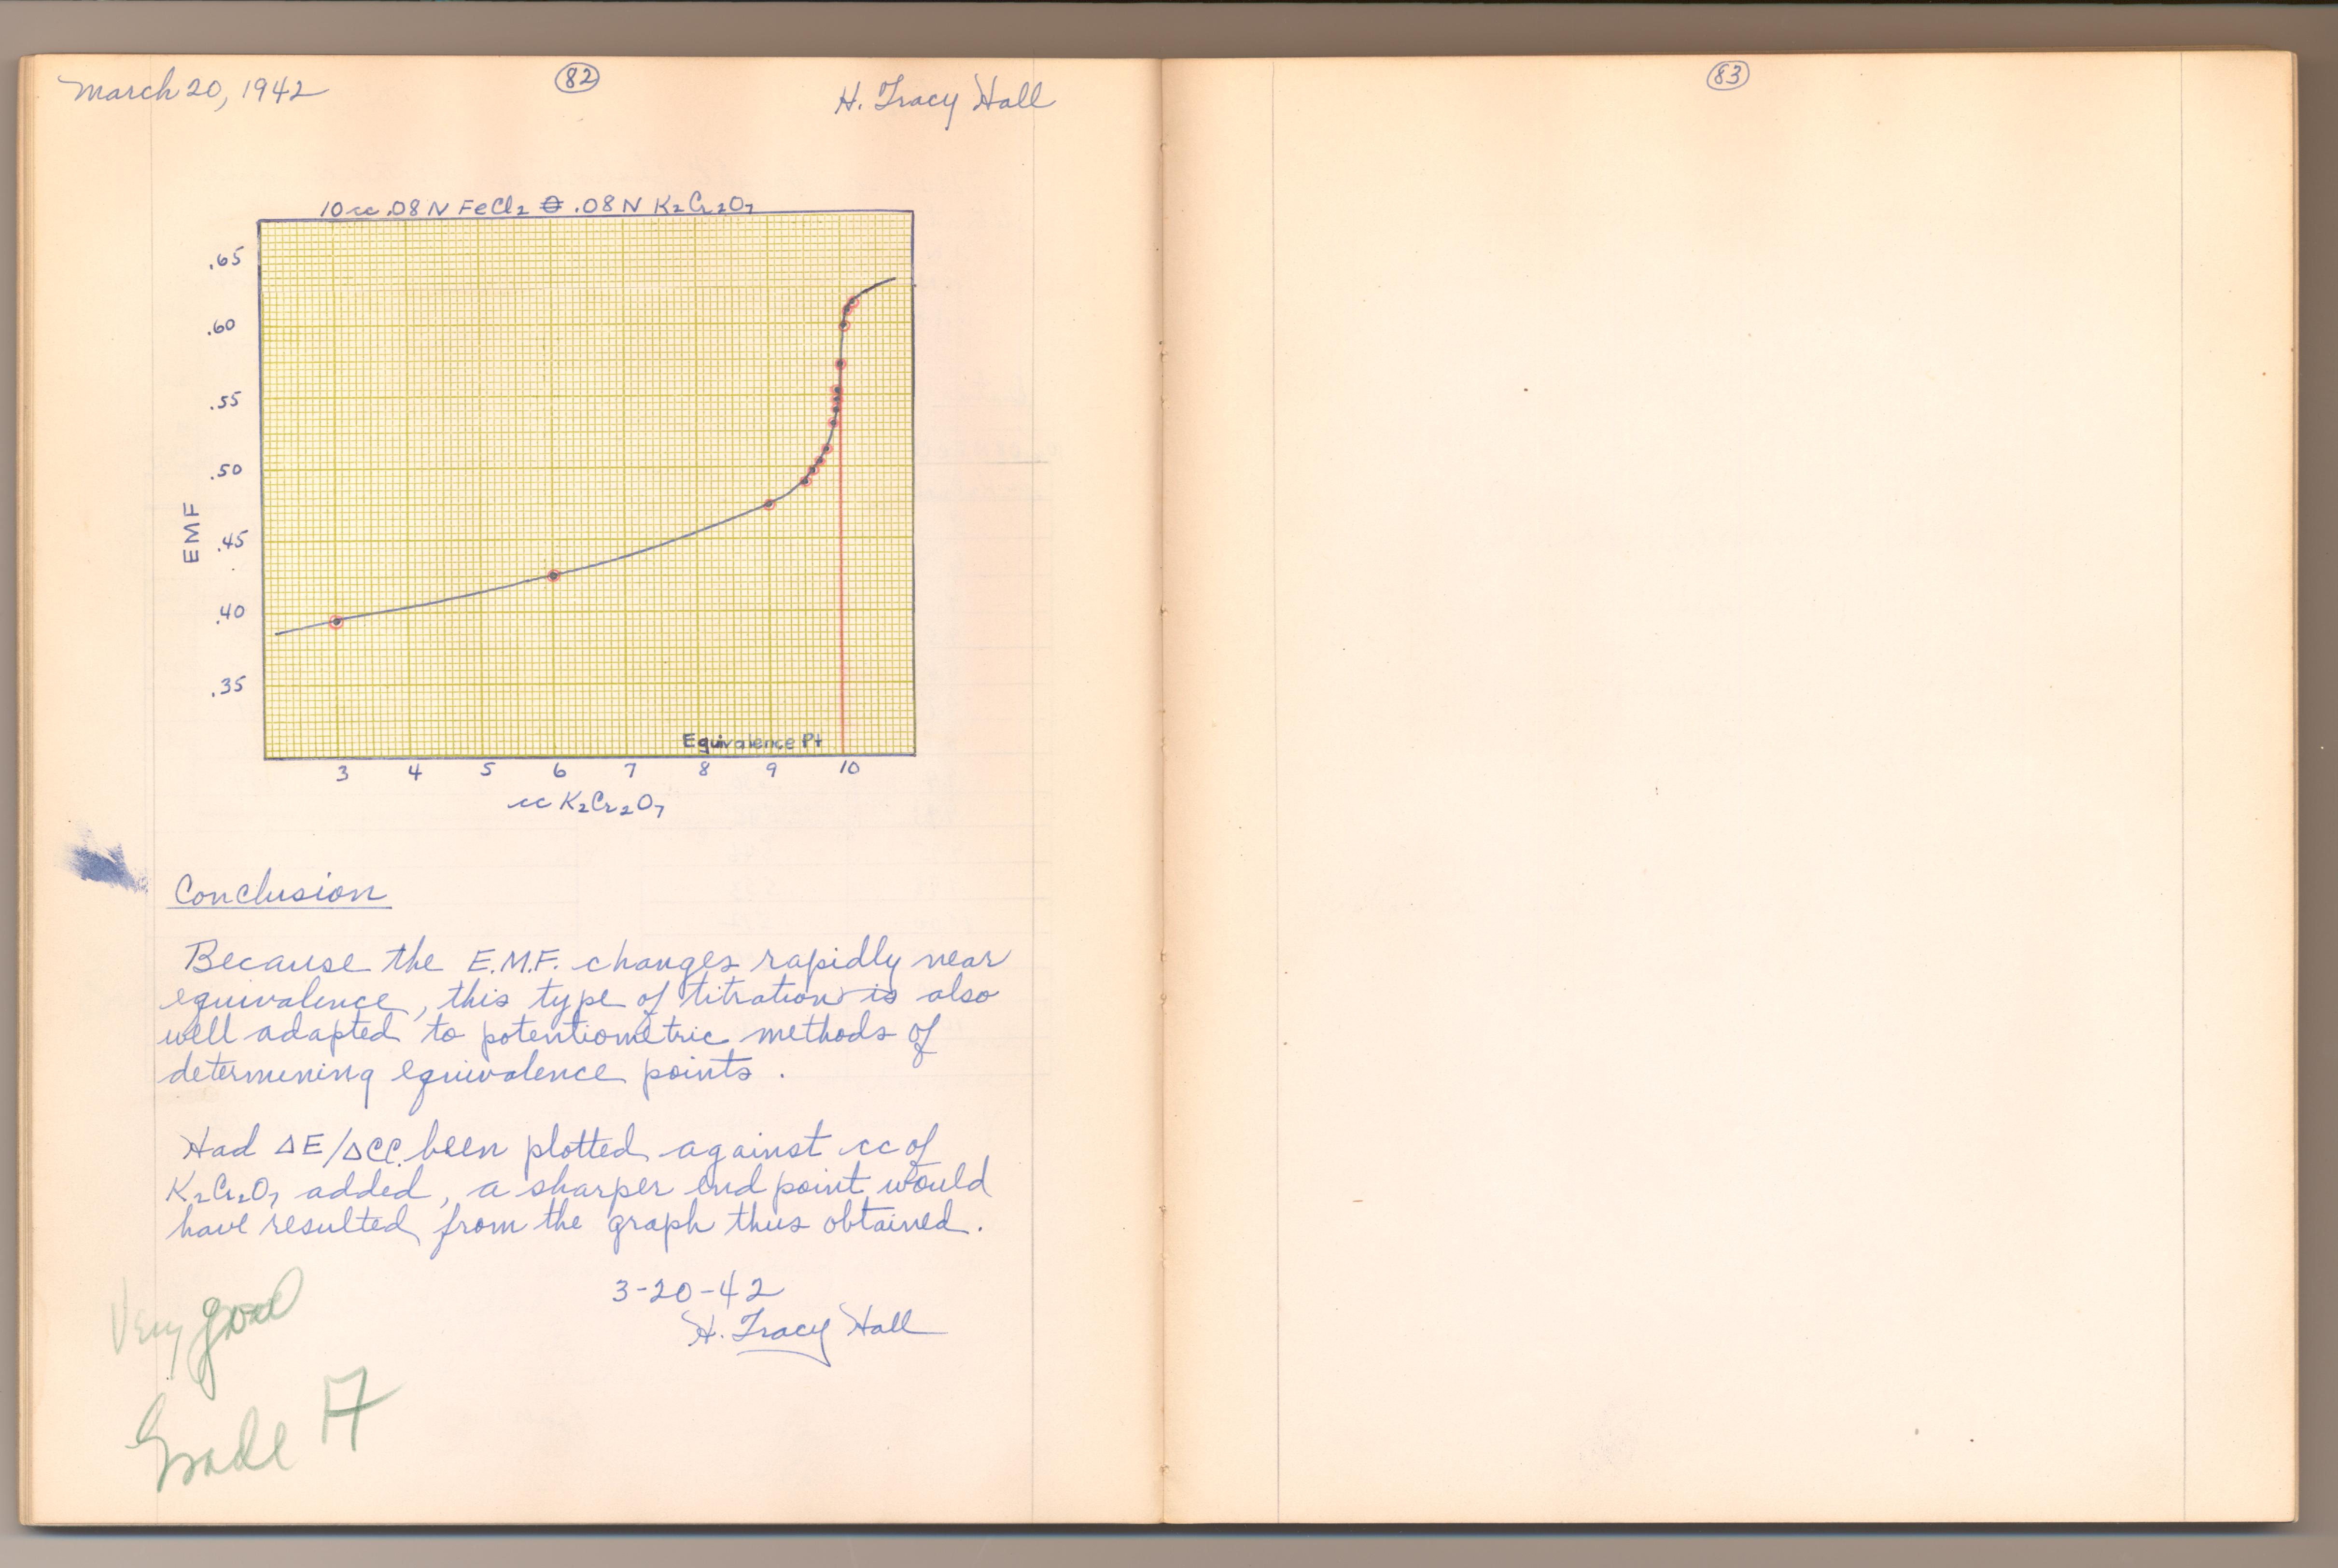 March 20, 1942
82
H. Tracy Hall
10 cc .08 N FeCl₂ .08 N K₂Cr₂O₇
.65
.60
.55
.50
.45
.40
.35
EMF
Equivalence Pt
3 4 5 6 7 8 9 10
cc K₂Cr₂O₇
Conclusion
Because the E.M.F. changes rapidly near
equivalence, this type of titration is also
well adapted to potentiometric methods of
determining equivalence points.
Had ΔE/ΔCC. been plotted against cc of
K₂Cr₂O₇ added, a sharper end point would
have resulted from the graph thus obtained.
3-20-42
H. Tracy Hall
Very good
Grade A
83